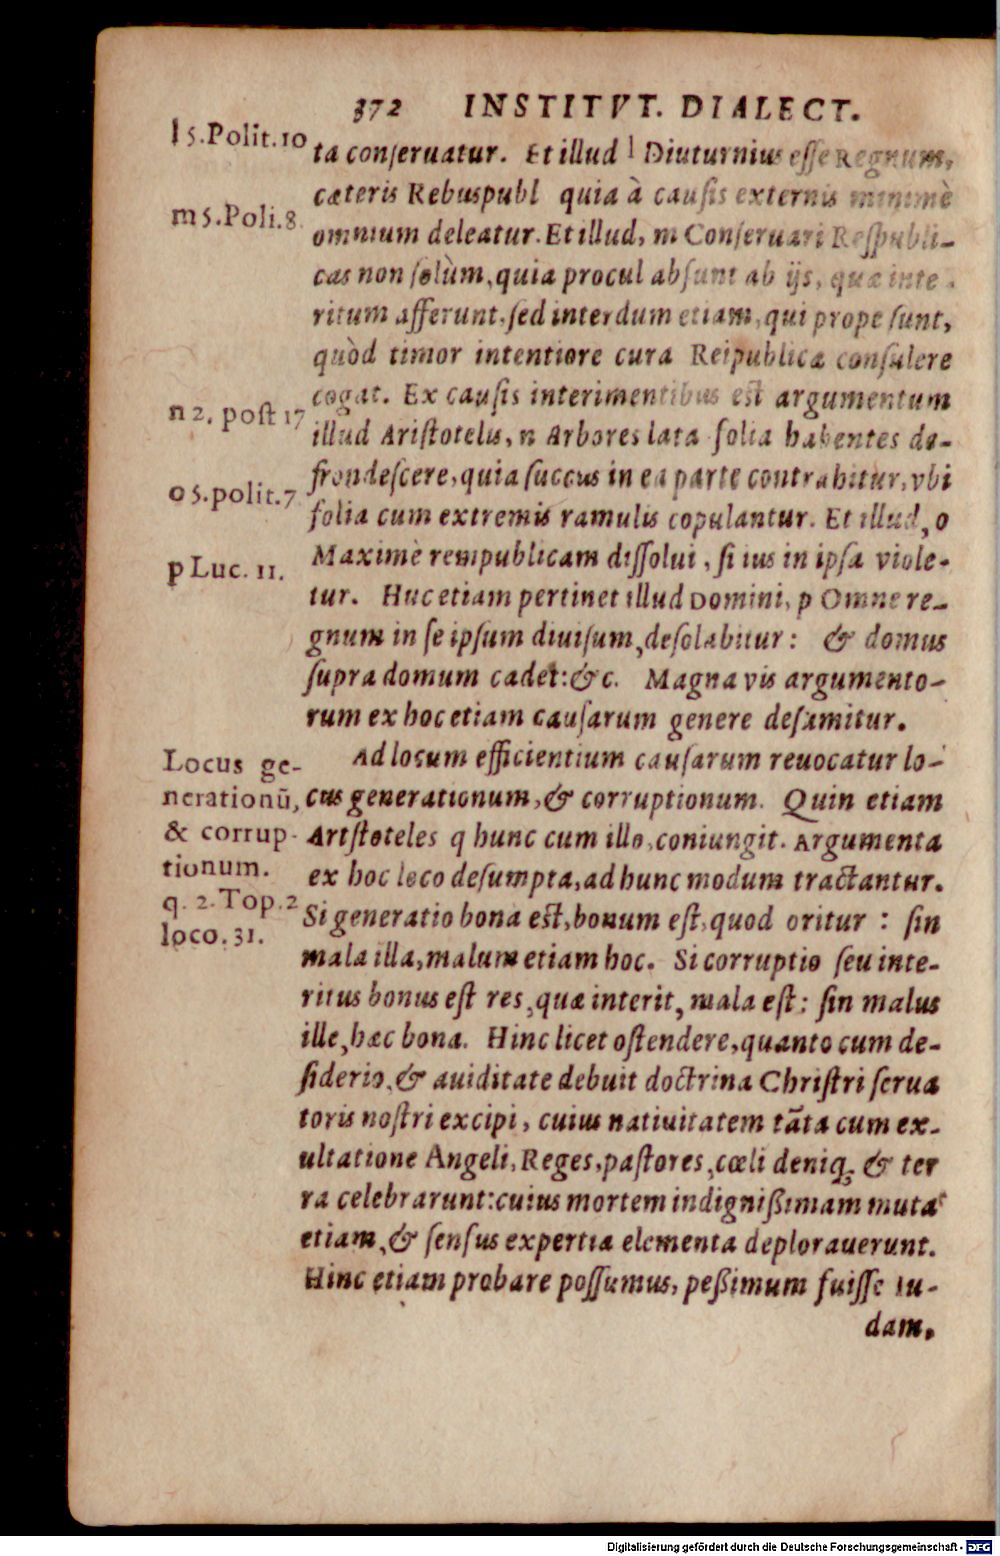 372 INSTITVT. DIALECT.
l 5.Polit.10
ta conseruatur. Et illud l Diuturnius esse Regnum,
cæteris Rebuspubl quia à causis externis minimè
m 5.Poli.8.
omnium deleatur. Et illud, m Conseruari Respubli-
cas non solùm, quia procul absunt ab ijs, quæ inte
ritum afferunt, sed interdum etiam, qui prope sunt,
quòd timor intentiore cura Reipublicæ consulere
cogat. Ex causis interimentibus est argumentum
n 2. post 17
illud Aristotelis, n Arbores lata folia habentes de-
frondescere, quia succus in ea parte contrahitur, vbi
o 5.polit.7
folia cum extremis ramulis copulantur. Et illud, o
Maximè rempublicam dissolui, si ius in ipsa viole-
p Luc. 11.
tur. Huc etiam pertinet illud Domini, p Omne re-
gnum in se ipsum diuisum, desolabitur: & domus
supra domum cadet: &c. Magna vis argumento-
rum ex hoc etiam causarum genere desumitur.
Locus ge-
nerationū,
& corrup-
tionum.
q. 2. Top. 2
loco. 31.
Ad locum efficientium causarum reuocatur lo-
cus generationum, & corruptionum. Quin etiam
Aristoteles q hunc cum illo, coniungit. Argumenta
ex hoc loco desumpta, ad hunc modum tractantur.
Si generatio bona est, bonum est, quod oritur : sin
mala illa, malum etiam hoc. Si corruptio seu inte-
ritus bonus est res, quæ interit, mala est: sin malus
ille, hæc bona. Hinc licet ostendere, quanto cum de-
siderio, & auiditate debuit doctrina Christri serua
toris nostri excipi, cuius natiuitatem tāta cum ex-
ultatione Angeli, Reges, pastores, cœli deniq; & ter
ra celebrarunt: cuius mortem indignißimam muta
etiam, & sensus expertia elementa deplorauerunt.
Hinc etiam probare possumus, peßimum fuisse Iu-
dam,
Digitalisierung gefördert durch die Deutsche Forschungsgemeinschaft - DFG